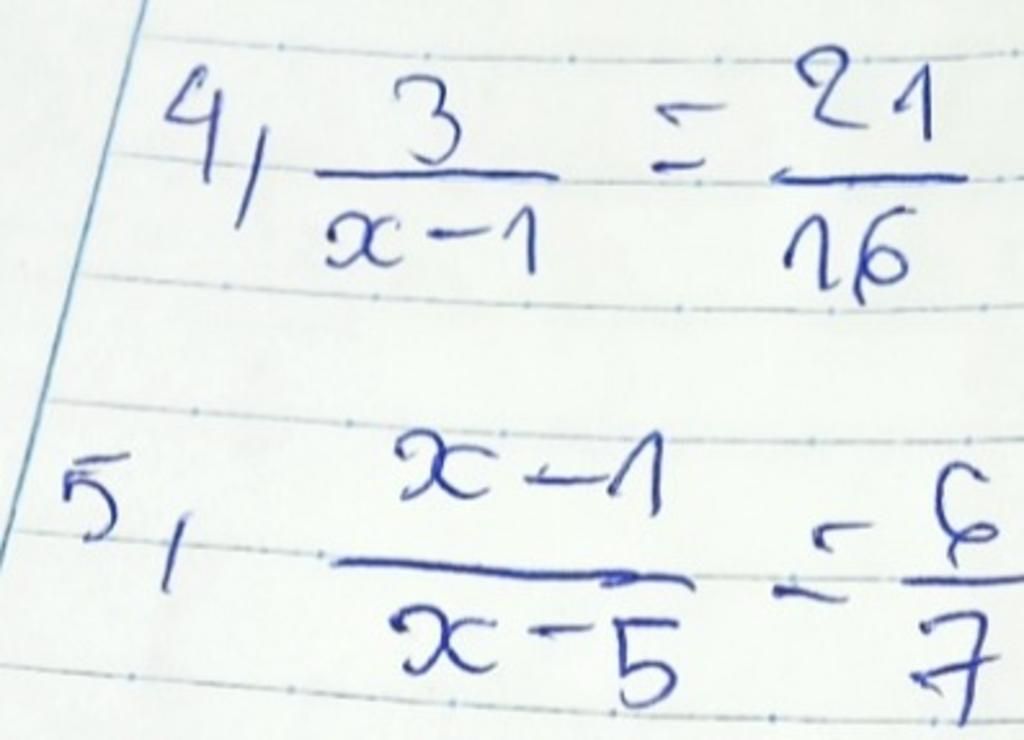 4, 3/(x-1) = 21/16
5, (x-1)/(x-5) = 6/7